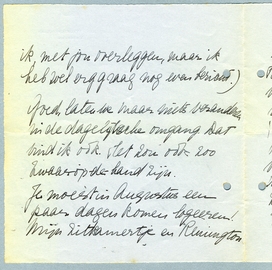 ik, met jou overleggen, maar ik
heb wel erg graag nog even bericht.)
Goed, laten we maar niets veranderen
in de dagelijksche omgang dat
vind ik ook. Het zou ook zoo
zwaar op de hand zijn.
Je moest in Augustus een
paar dagen komen logeeren!
Mijn zitkamertje en Remington